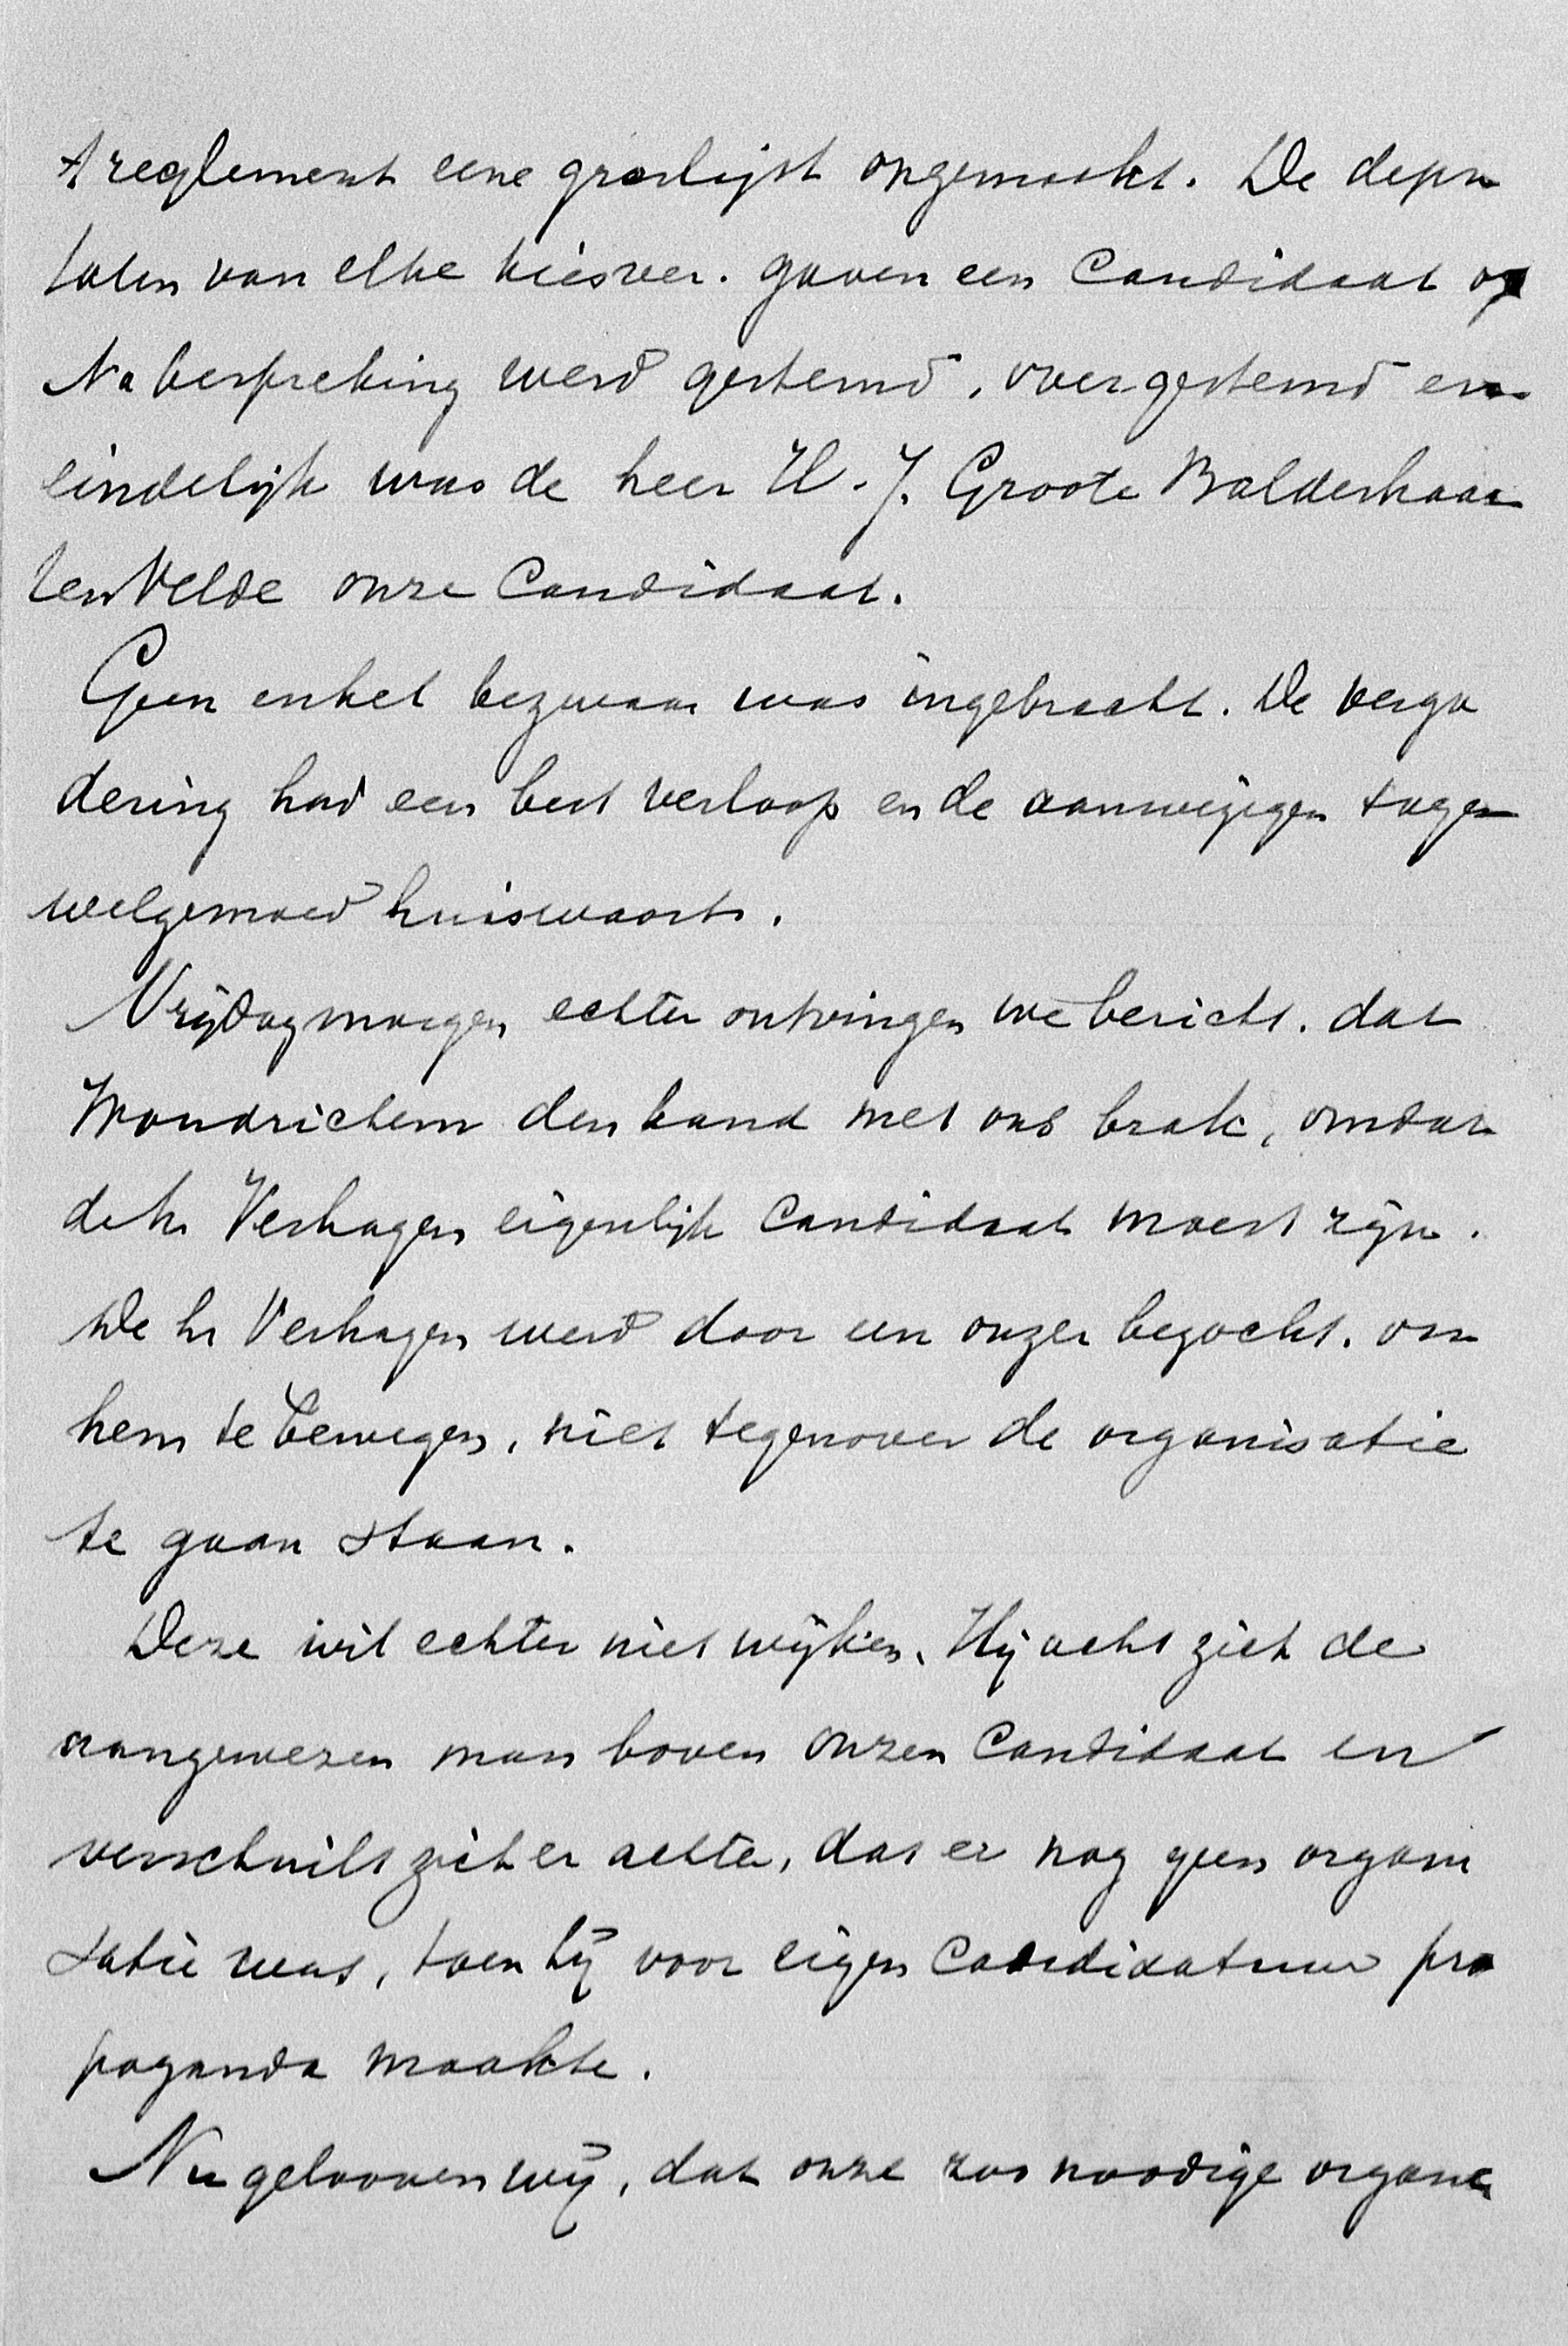 't reglement eene groslijst opgemaakt. De depu
taten van elke kiesver. gaven een Candidaat op
Na bespreking werd gestemd, overgestemd en
eindelijk was de heer H. J. Groote Balderhaar
ten Velde onze Candidaat.
Geen enkel bezwaar was ingebracht. De verga
dering had een best verloop en de aanwezigen togen
welgemoed huiswaarts.
Vrijdagmorgen echter ontvingen we bericht. dat
Woudrichem den band met ons brak, omdat
de hr Verhagen eigenlijk Candidaat moest zijn.
De hr Verhagen werd door een onzer bezocht. om
hem te bewegen, niet tegenover de organisatie
te gaan staan.
Deze wil echter niet wijken. Hij acht zich de
aangewezen man boven onzen Candidaat en
verschuilt zich er achter, dat er nog geen organi
satie was, toen hij voor eigen Candidatuur pro
paganda maakte.
Nu gelooven wij, dat onze zoo noodige organi